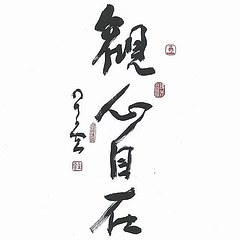 觀心自在